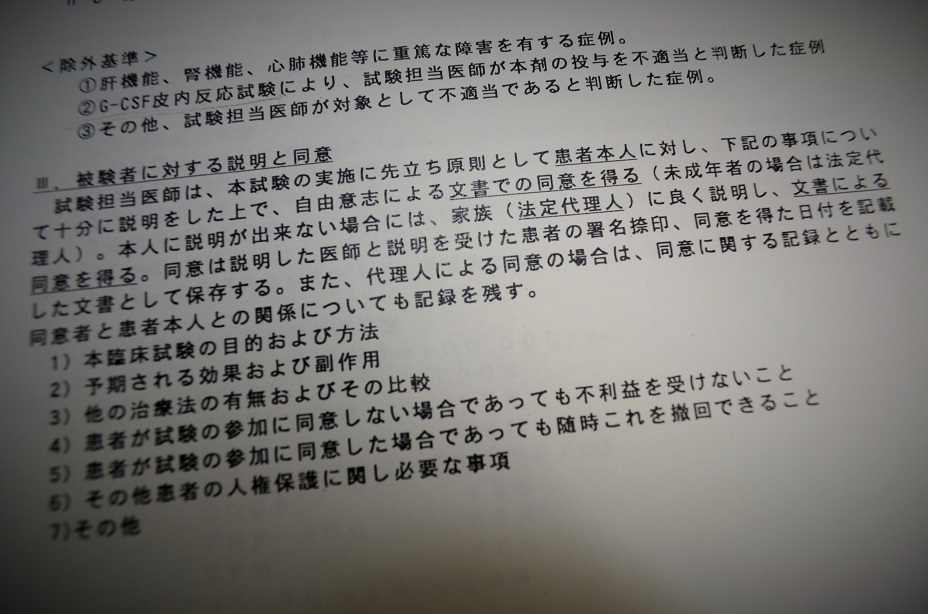 <除外基準>
①肝機能、腎機能、心肺機能等に重篤な障害を有する症例。
②G-CSF皮内反応試験により、試験担当医師が本剤の投与を不適当と判断した症例
③その他、試験担当医師が対象として不適当であると判断した症例。
Ⅲ．被験者に対する説明と同意
試験担当医師は、本試験の実施に先立ち原則として患者本人に対し、下記の事項につい
て十分に説明をした上で、自由意志による文書での同意を得る（未成年者の場合は法定代
理人）。本人に説明が出来ない場合には、家族（法定代理人）に良く説明し、文書による
同意を得る。同意は説明した医師と説明を受けた患者の署名捺印、同意を得た日付を記載
した文書として保存する。また、代理人による同意の場合は、同意に関する記録とともに
同意者と患者本人との関係についても記録を残す。
1) 本臨床試験の目的および方法
2) 予期される効果および副作用
3) 他の治療法の有無およびその比較
4) 患者が試験の参加に同意しない場合であっても不利益を受けないこと
5) 患者が試験の参加に同意した場合であっても随時これを撤回できること
6) その他患者の人権保護に関し必要な事項
7)その他